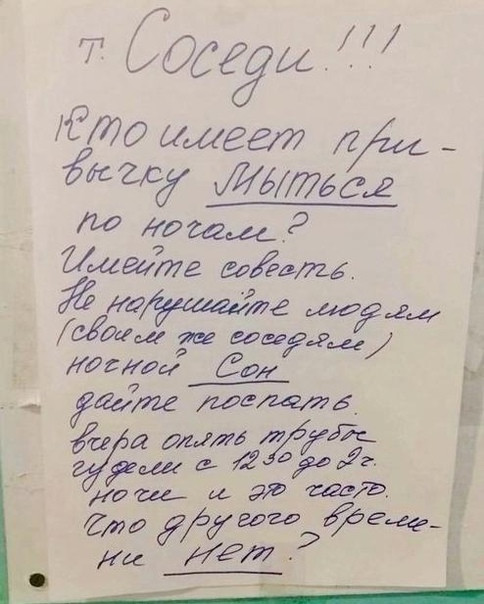 т. Соседи!!!
Кто имеет при-
вычку Мыться
по ночам?
Имейте совесть.
Не нарушайте людям
(своим же соседям)
ночной Сон
дайте поспать.
вчера опять трубы
гудели с 12 30 до 2 ч.
ночи и это часто.
Что другого време-
ни нет?